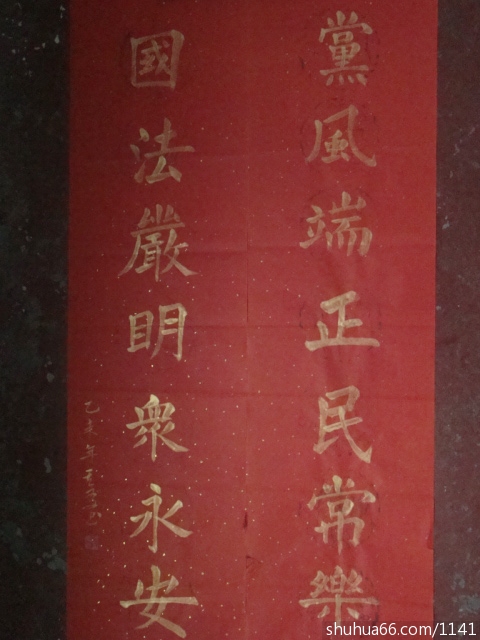 黨風端正民常樂
國法嚴明眾永安
乙未年
shuhua66.com/1141